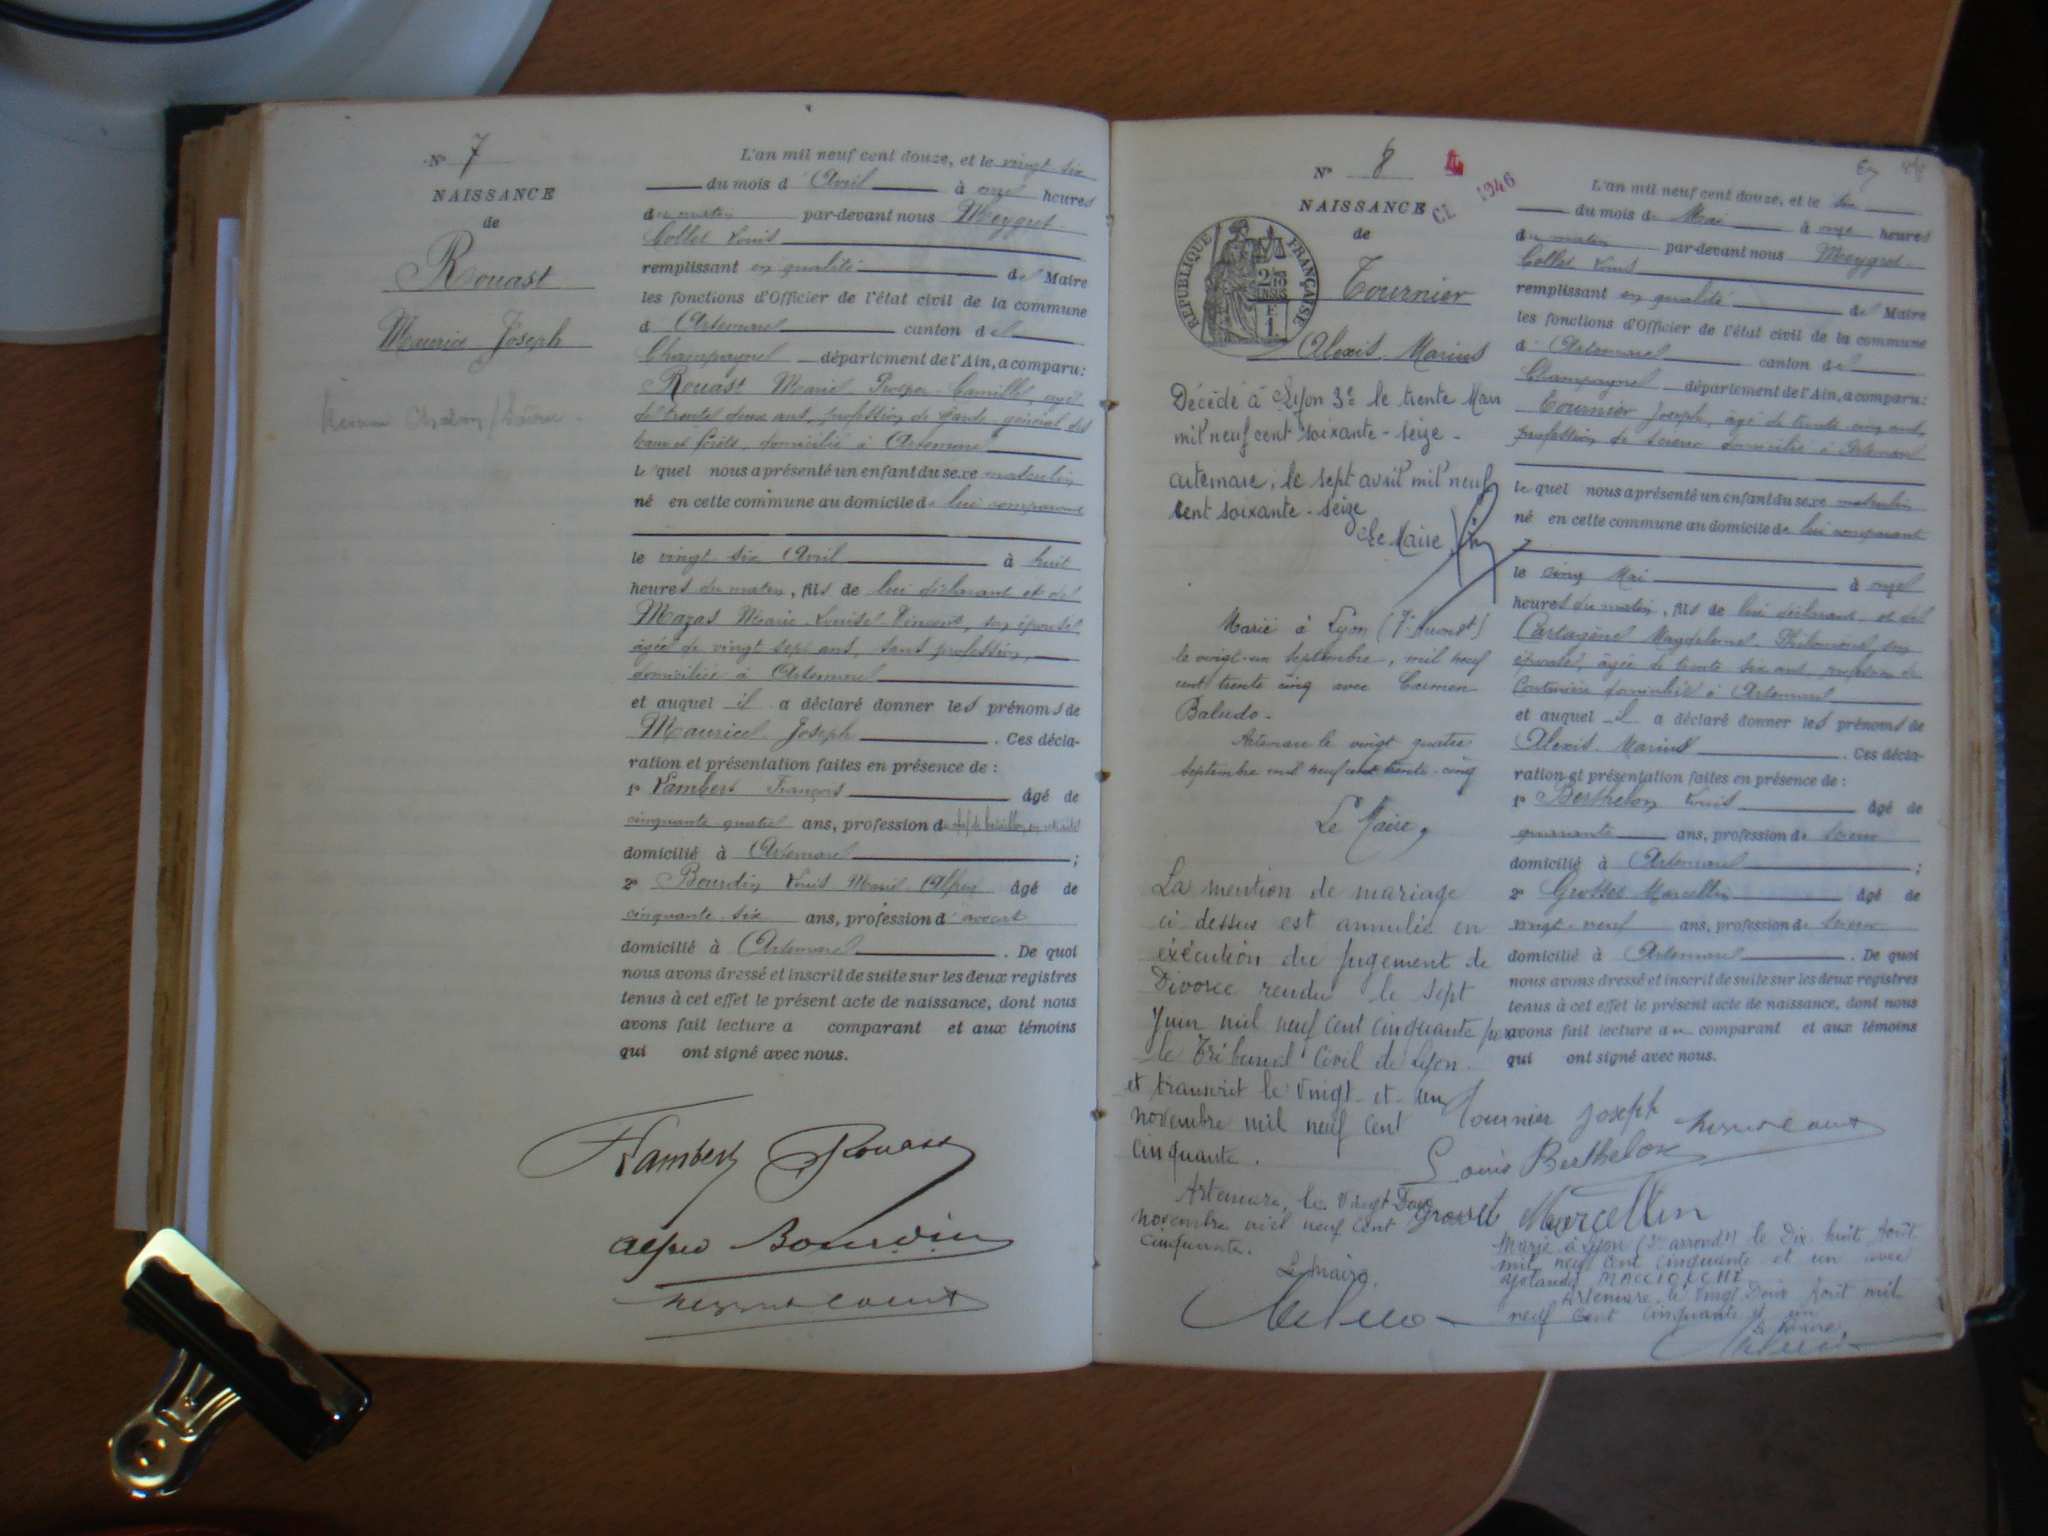 N° 7
NAISSANCE
de
Rouast
Maurice Joseph
L'an mil neuf cent douze, et le vingt six
du mois d'Avril à onze heures
du matin par-devant nous Meygret
Collet Louis
remplissant en qualité de Maire
les fonctions d'Officier de l'état civil de la commune
d'Artemare canton de
Champagne département de l'Ain, a comparu:
Rouast Marie Prosper Camille, âgé
de trente deux ans, profession de garde général des
eaux et forêts, domicilié à Artemare
lequel nous a présenté un enfant du sexe masculin
né en cette commune au domicile de lui comparant
le vingt six Avril à huit
heures du matin, fils de lui déclarant et de
Mazas Marie Louise, son épouse
âgée de vingt sept ans, sans profession,
domiciliée à Artemare
et auquel il a déclaré donner les prénoms de
Maurice Joseph. Ces décla-
ration et présentation faites en présence de :
1° Lambert François âgé de
cinquante quatre ans, profession de chef de bataillon en retraite
domicilié à Artemare ;
2° Bourdin Louis Marie Alfred âgé de
cinquante six ans, profession d'avocat
domicilié à Artemare. De quoi
nous avons dressé et inscrit de suite sur les deux registres
tenus à cet effet le présent acte de naissance, dont nous
avons fait lecture a comparant et aux témoins
qui ont signé avec nous.
Lambert Rouast
Alfred Bourdin
N° 8
CL 1946
NAISSANCE
de
Tournier
Alexis Marius
RÉPUBLIQUE FRANÇAISE
Décédé à Lyon 3e le trente Mars
mil neuf cent soixante-seize -
artemare, le sept avril mil neuf
cent soixante-seize
Le Maire
Marié à Lyon (7e arrondt)
le vingt-un septembre, mil neuf
cent trente cinq avec Carmen
Baludo.
Artemare le vingt quatre
septembre mil neuf cent trente-cinq
Le Maire,
La mention de mariage
ci dessus est annulée en
exécution du jugement de
Divorce rendu le sept
Juin mil neuf cent cinquante par
le Tribunal Civil de Lyon.
et transcrit le vingt-et-un
novembre mil neuf cent
cinquante.
Artemare, le vingt Deux
novembre mil neuf cent
cinquante.
Le Maire.
L'an mil neuf cent douze, et le
du mois de Mai à onze heures
du matin par-devant nous Meygret
Collet Louis
remplissant en qualité de Maire
les fonctions d'Officier de l'état civil de la commune
d'Artemare canton de
Champagne département de l'Ain, a comparu:
Tournier Joseph, âgé de trente cinq ans,
profession de scieur domicilié à Artemare
lequel nous a présenté un enfant du sexe masculin
né en cette commune au domicile de lui comparant
le cinq Mai à onze
heures du matin, fils de lui déclarant et de
Magdeleine Philomène, son
épouse, âgée de trente six ans, profession de
Couturière domiciliée à Artemare
et auquel il a déclaré donner les prénoms de
Alexis Marius. Ces décla-
ration et présentation faites en présence de :
1° Berthelon Louis âgé de
quarante ans, profession de scieur
domicilié à Artemare ;
2° Grosset Marcellin âgé de
vingt-neuf ans, profession de scieur
domicilié à Artemare. De quoi
nous avons dressé et inscrit de suite sur les deux registres
tenus à cet effet le présent acte de naissance, dont nous
avons fait lecture au comparant et aux témoins
qui ont signé avec nous.
Tournier Joseph
Louis Berthelon
Grosset Marcellin
Marié à Lyon (3e arrondt) le Dix huit Août
mil neuf cent cinquante et un avec
Yolande
Artemare le vingt Deux Août mil
neuf cent cinquante et un
Le Maire,